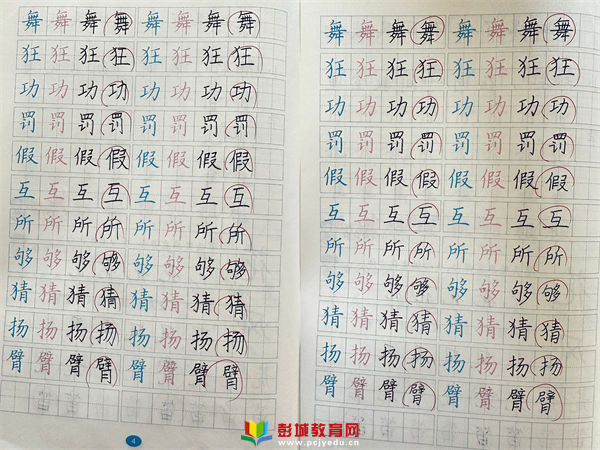 舞舞舞舞舞舞舞舞
狂狂狂狂狂狂狂狂
功功功功功功功功
罚罚罚罚罚罚罚罚
假假假假假假假假
互互互互互互互互
所所所所所所所所
够够够够够够够够
猜猜猜猜猜猜猜猜
扬扬扬扬扬扬扬扬
臂臂臂臂臂臂臂臂
4
舞舞舞舞舞舞舞舞
狂狂狂狂狂狂狂狂
功功功功功功功功
罚罚罚罚罚罚罚罚
假假假假假假假假
互互互互互互互互
所所所所所所所所
够够够够够够够够
猜猜猜猜猜猜猜猜
扬扬扬扬扬扬扬扬
臂臂臂臂臂臂臂臂
彭城教育网
www.pcjyedu.cn